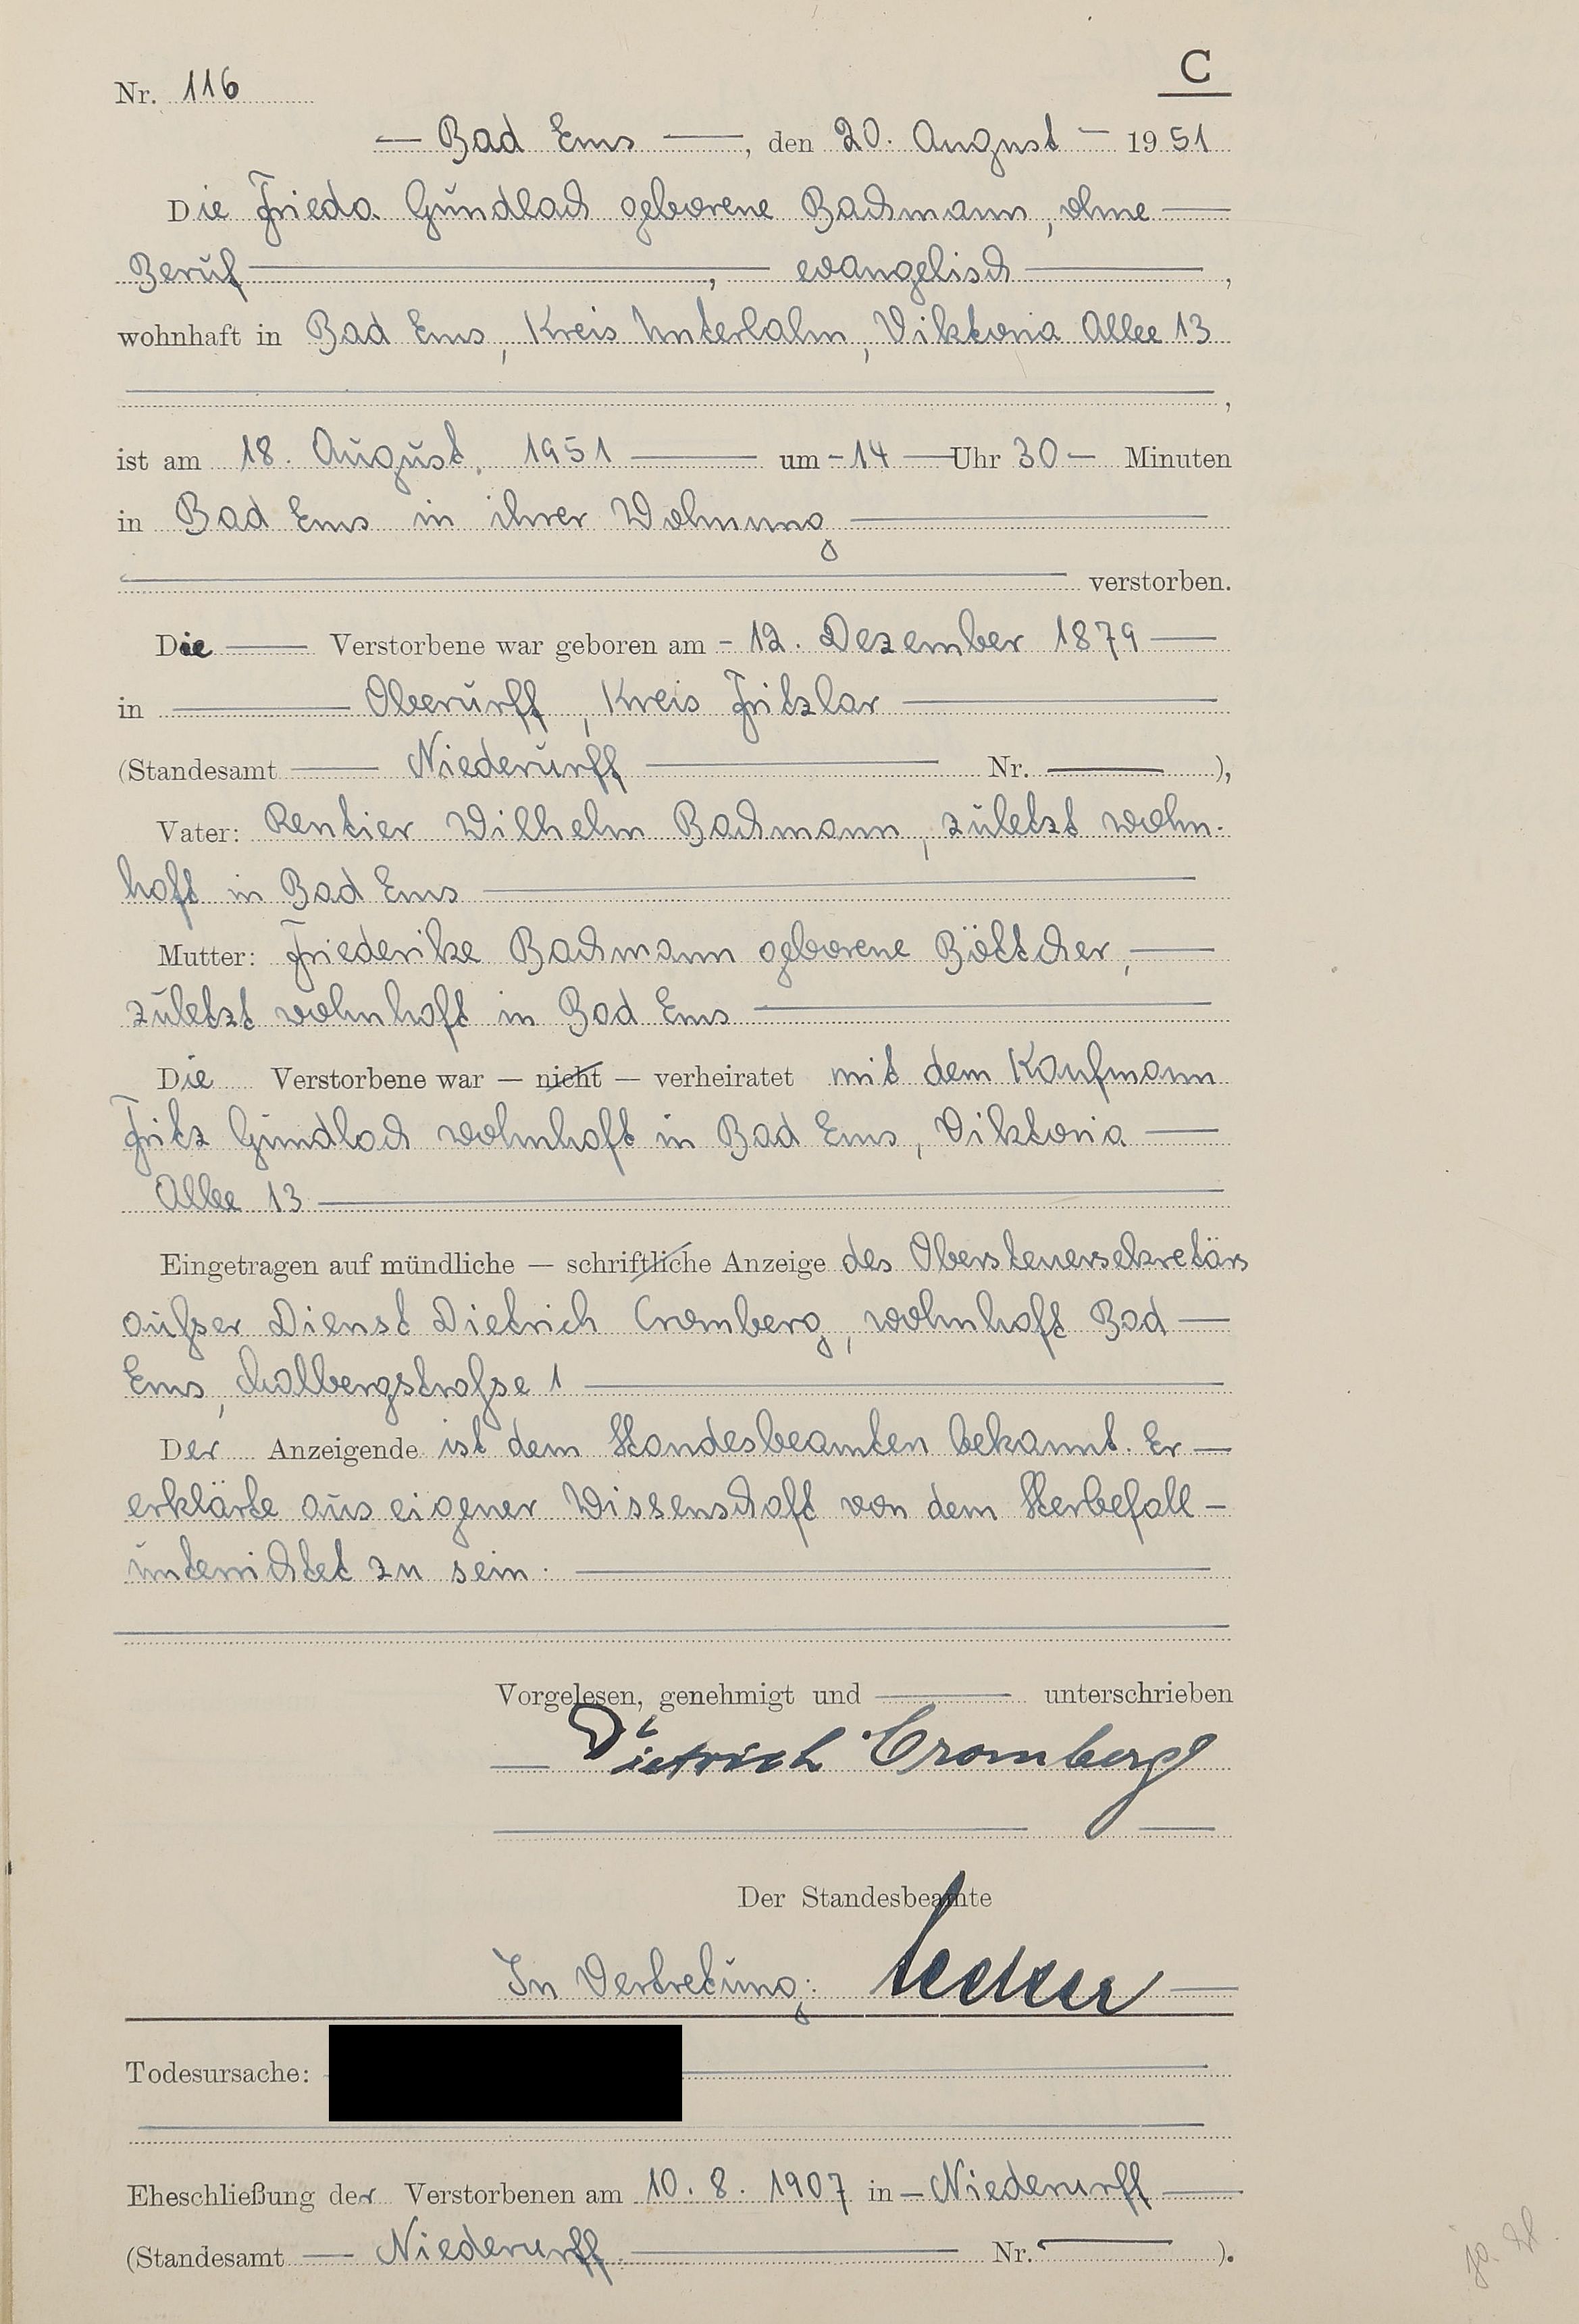 C
Nr. 116
— Bad Ems —, den 20. August — 1951
Die Frieda Gundlach geborene Bachmann, ohne —
Beruf —, evangelisch —,
wohnhaft in Bad Ems, Kreis Unterlahn, Viktoria Allee 13
,
ist am 18. August 1951 — um - 14 — Uhr 30 — Minuten
in Bad Ems in ihrer Wohnung —
verstorben.
Die — Verstorbene war geboren am - 12. Dezember 1879 —
in — Oberurff, Kreis Fritzlar —
(Standesamt — Niederurff — Nr. —),
Vater: Rentier Wilhelm Bachmann, zuletzt wohn-
haft in Bad Ems —
Mutter: Friederike Bachmann geborene Böttcher, —
zuletzt wohnhaft in Bad Ems —
Die Verstorbene war — nicht — verheiratet mit dem Kaufmann
Fritz Gundlach wohnhaft in Bad Ems, Viktoria —
Allee 13 —
Eingetragen auf mündliche — schriftliche Anzeige des Obersteuersekretärs
außer Dienst Dietrich Cromberg, wohnhaft Bad —
Ems, Malbergstraße 1 —
Der Anzeigende ist dem Standesbeamten bekannt. Er —
erklärte aus eigener Wissenschaft von dem Sterbefall —
unterrichtet zu sein. —
Vorgelesen, genehmigt und — unterschrieben
— Dietrich Cromberg
Der Standesbeamte
In Vertretung:
Todesursache:
Eheschließung der Verstorbenen am 10. 8. 1907 in — Niederurff —
(Standesamt — Niederurff — Nr. — ).